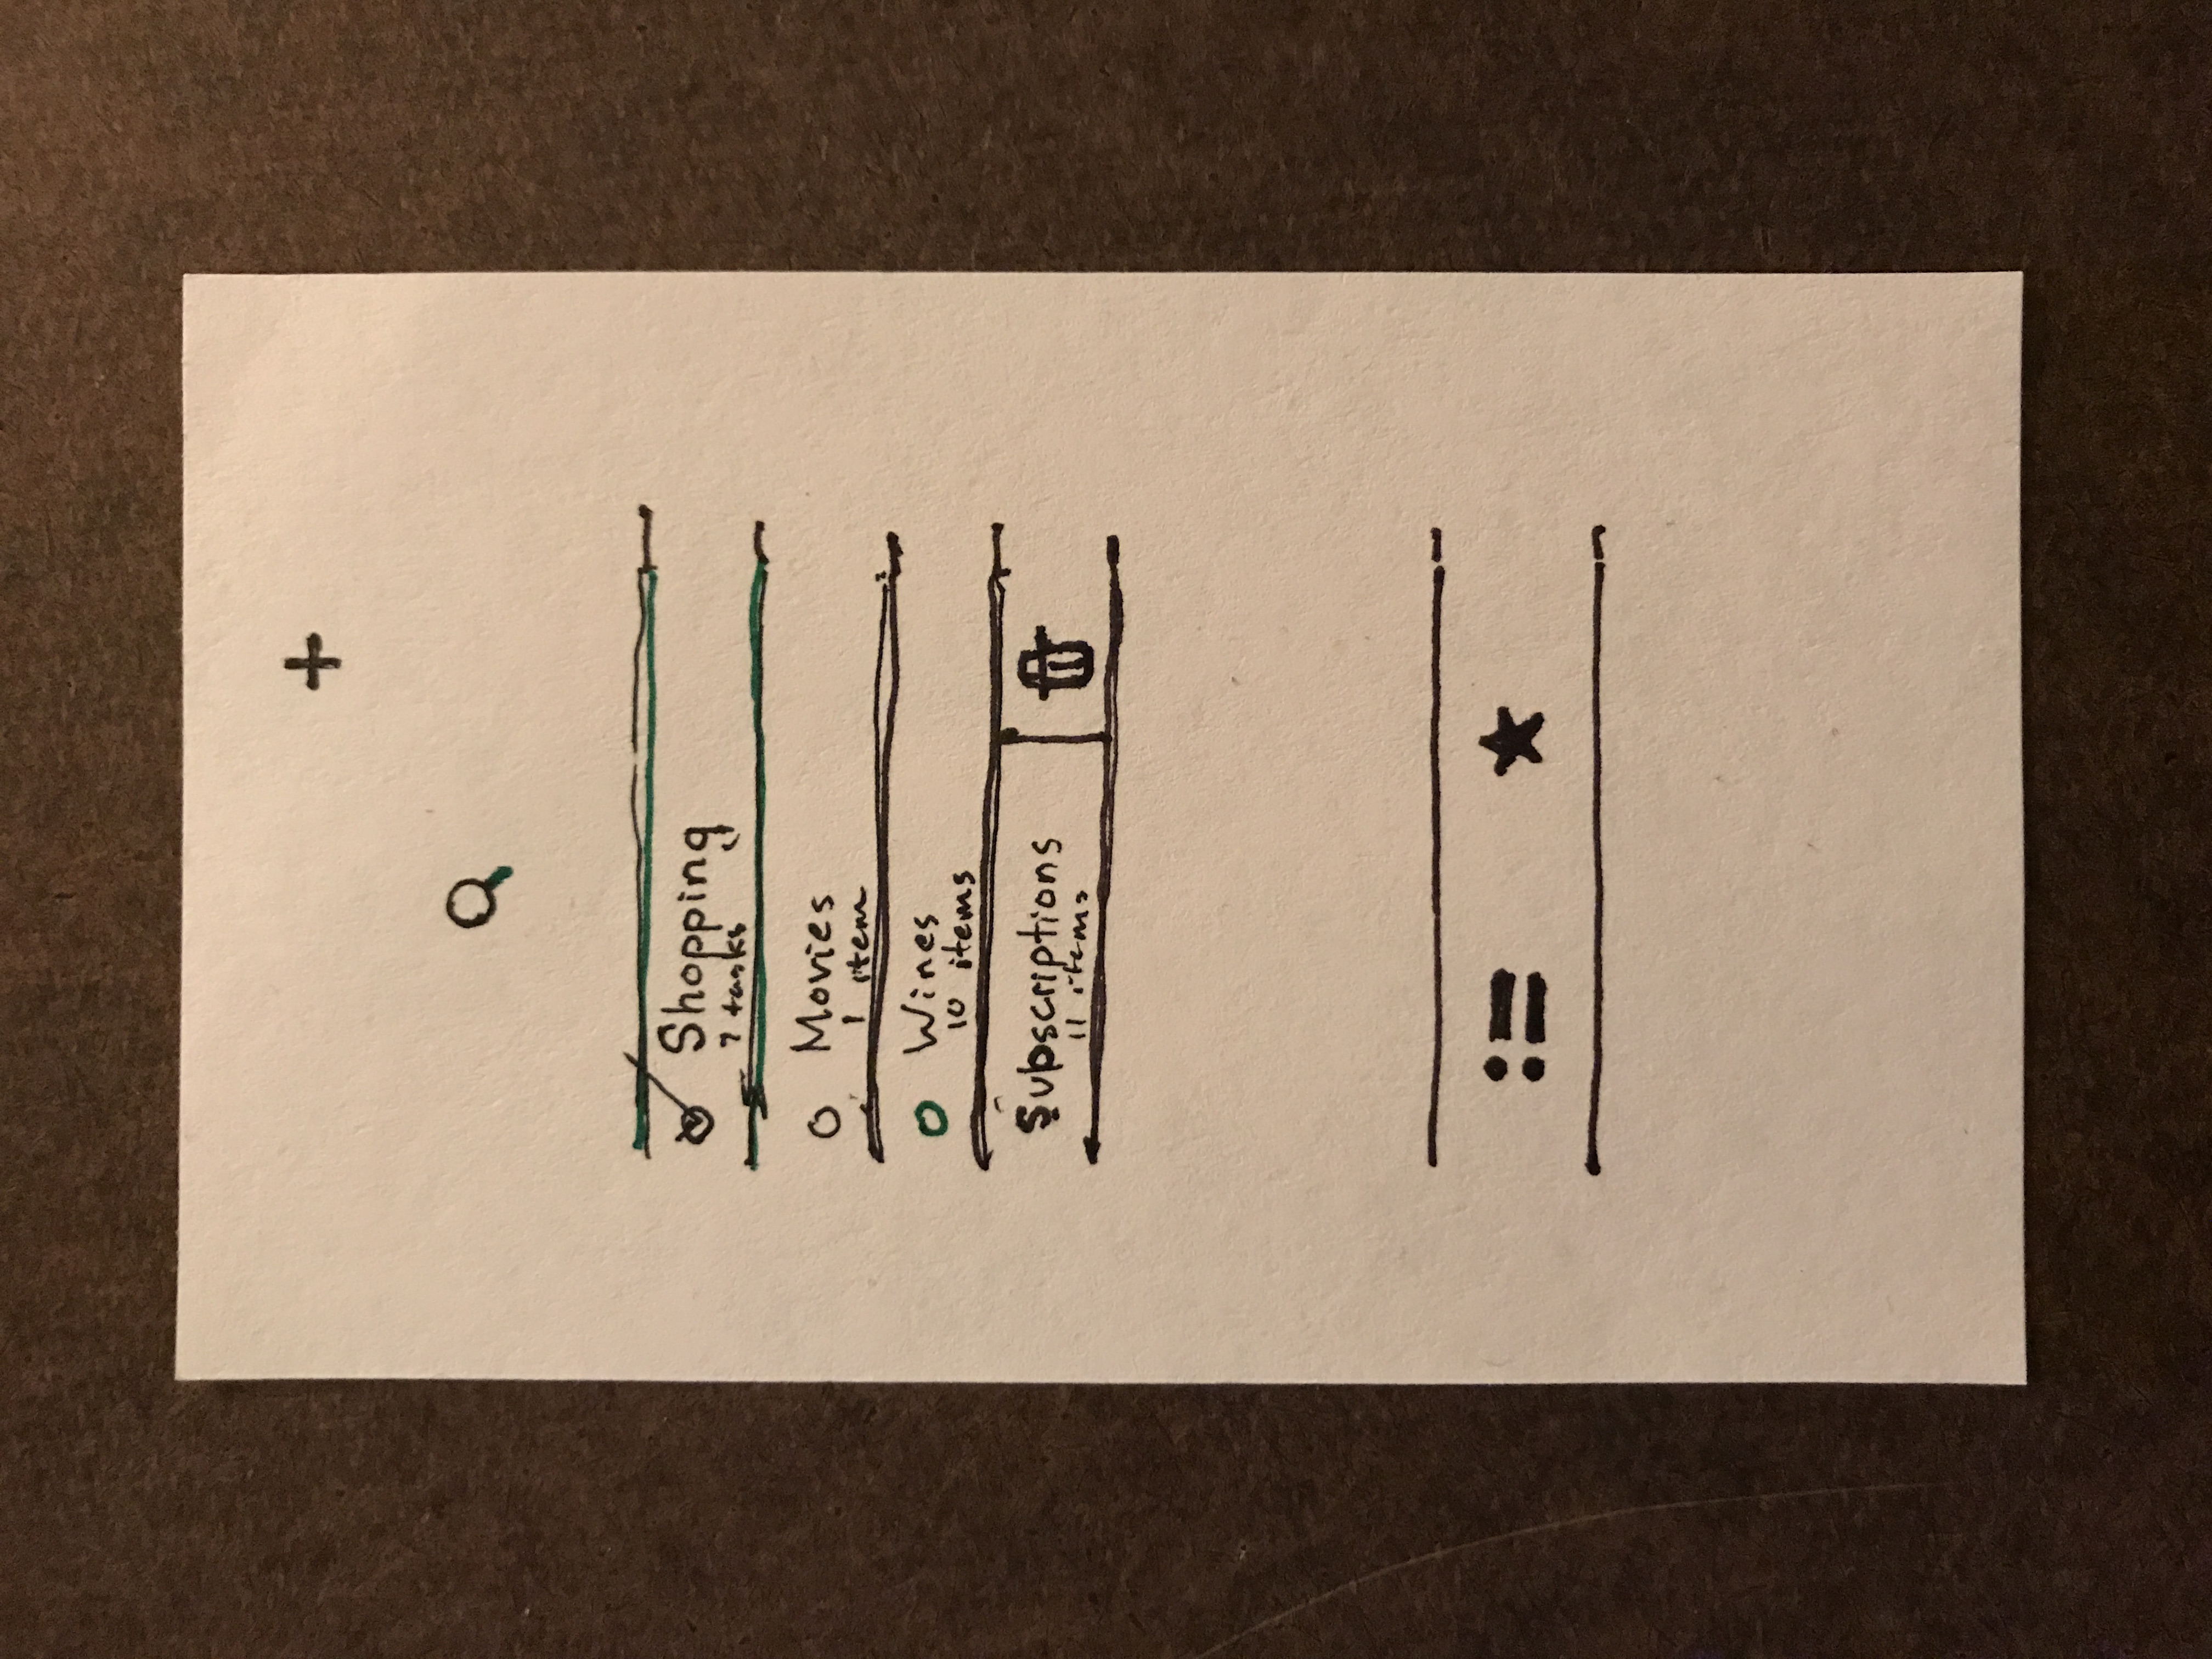 Shopping
7 tasks
Movies
1 item
Wines
10 items
Subscriptions
11 items